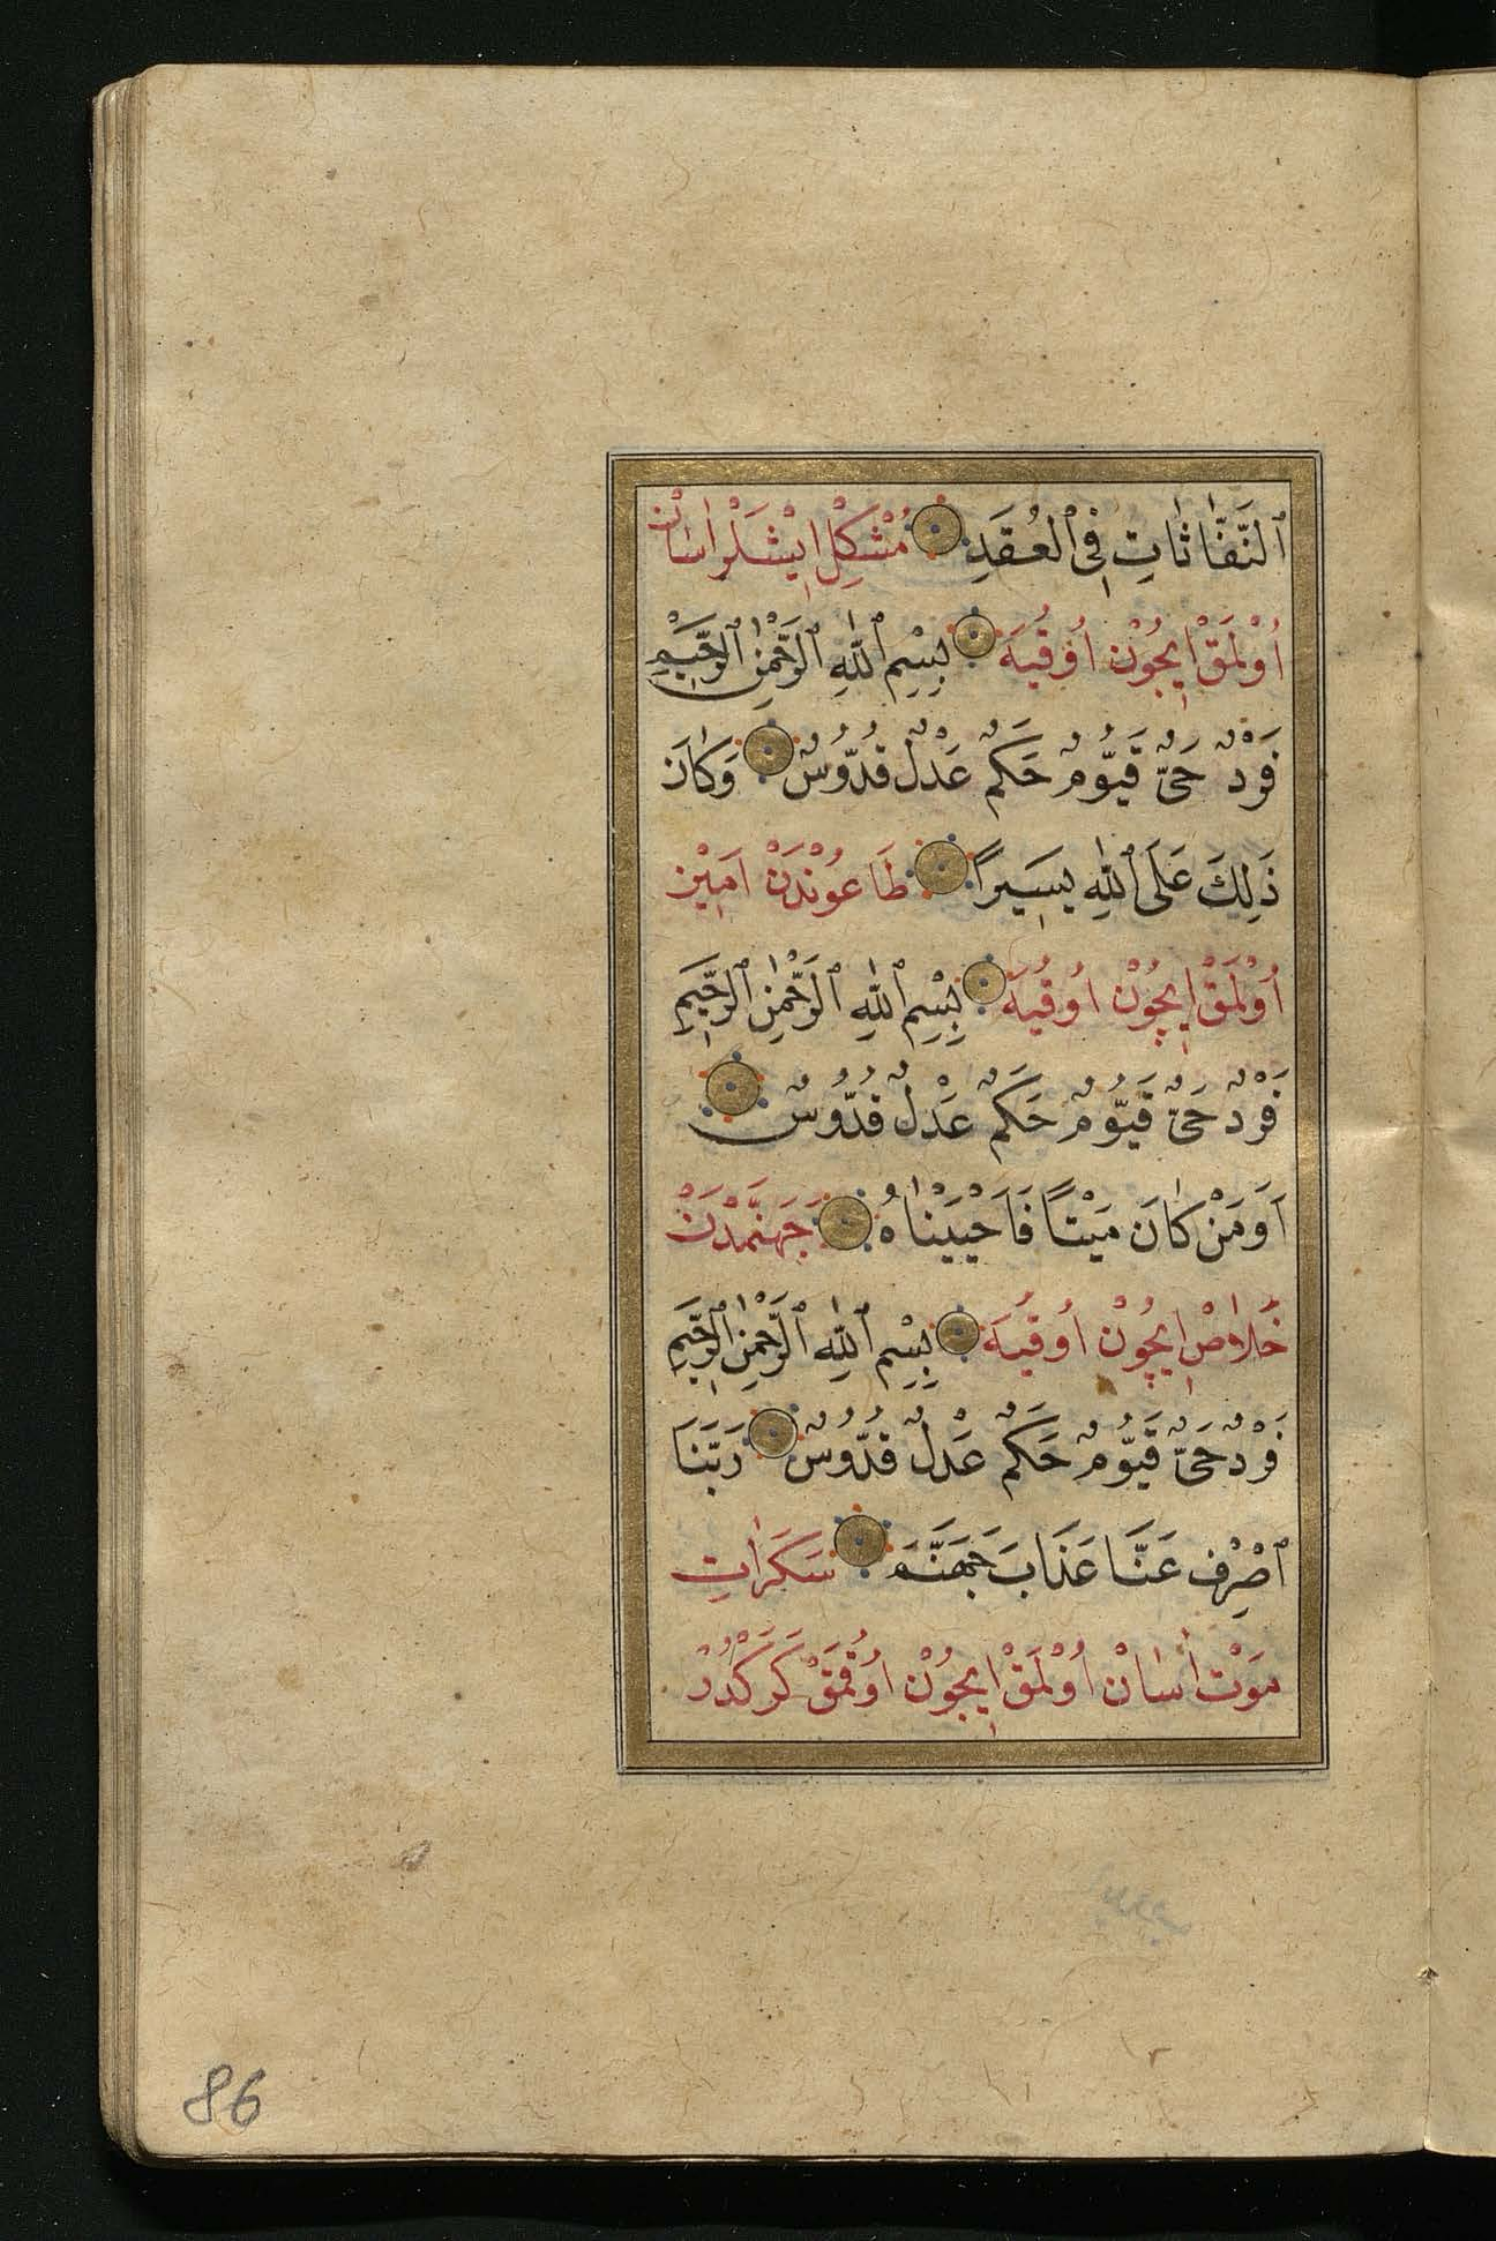 ٱلنَّفَّاثَاتِ فِى ٱلْعُقَدِ مُشْكِلْ اِيشْلَرْ اٰسَانْ
اُوْلمَقْ اِيچُوْنْ اُوقُيَه بِسْمِ ٱللّٰهِ ٱلرَّحْمٰنِ ٱلرَّحِيمِ
فَرْدٌ حَىٌّ قَيُّومٌ حَكَمٌ عَدْلٌ قُدُّوسٌ وَكَانَ
ذَلِكَ عَلَى ٱللّٰهِ يَسِيرًا طَاعُونْدَنْ اَمِينْ
اُوْلمَقْ اِيچُوْنْ اُوقُيَه بِسْمِ ٱللّٰهِ ٱلرَّحْمٰنِ ٱلرَّحِيمِ
فَرْدٌ حَىٌّ قَيُّومٌ حَكَمٌ عَدْلٌ قُدُّوسٌ
اَوَمَنْ كَانَ مَيْتًا فَاَحْيَيْنَاهُ جَهَنَّمْدَنْ
خَلَاصْ اِيچُوْنْ اُوقُيَه بِسْمِ ٱللّٰهِ ٱلرَّحْمٰنِ ٱلرَّحِيمِ
فَرْدٌ حَىٌّ قَيُّومٌ حَكَمٌ عَدْلٌ قُدُّوسٌ رَبَّنَا
ٱصْرِفْ عَنَّا عَذَابَ جَهَنَّمَ سَكَرَاتِ
مَوْتْ اٰسَانْ اُوْلمَقْ اِيچُوْنْ اُوقُمَقْ كَرَكْدُرْ
86